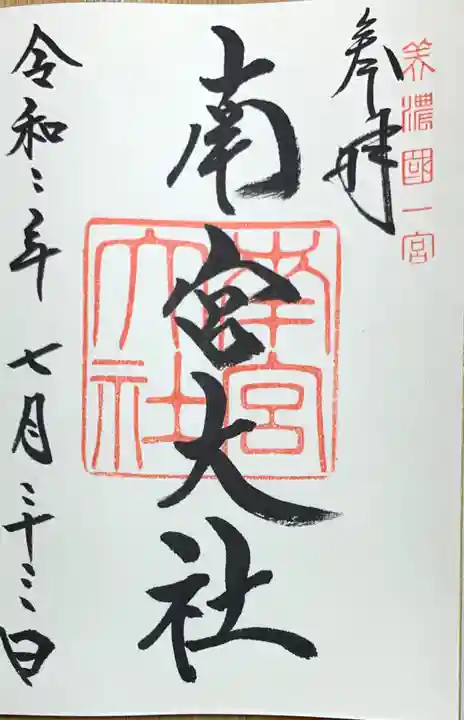 美濃國一宮
参拝
南宮大社
南宮大社
令和二年七月二十三日